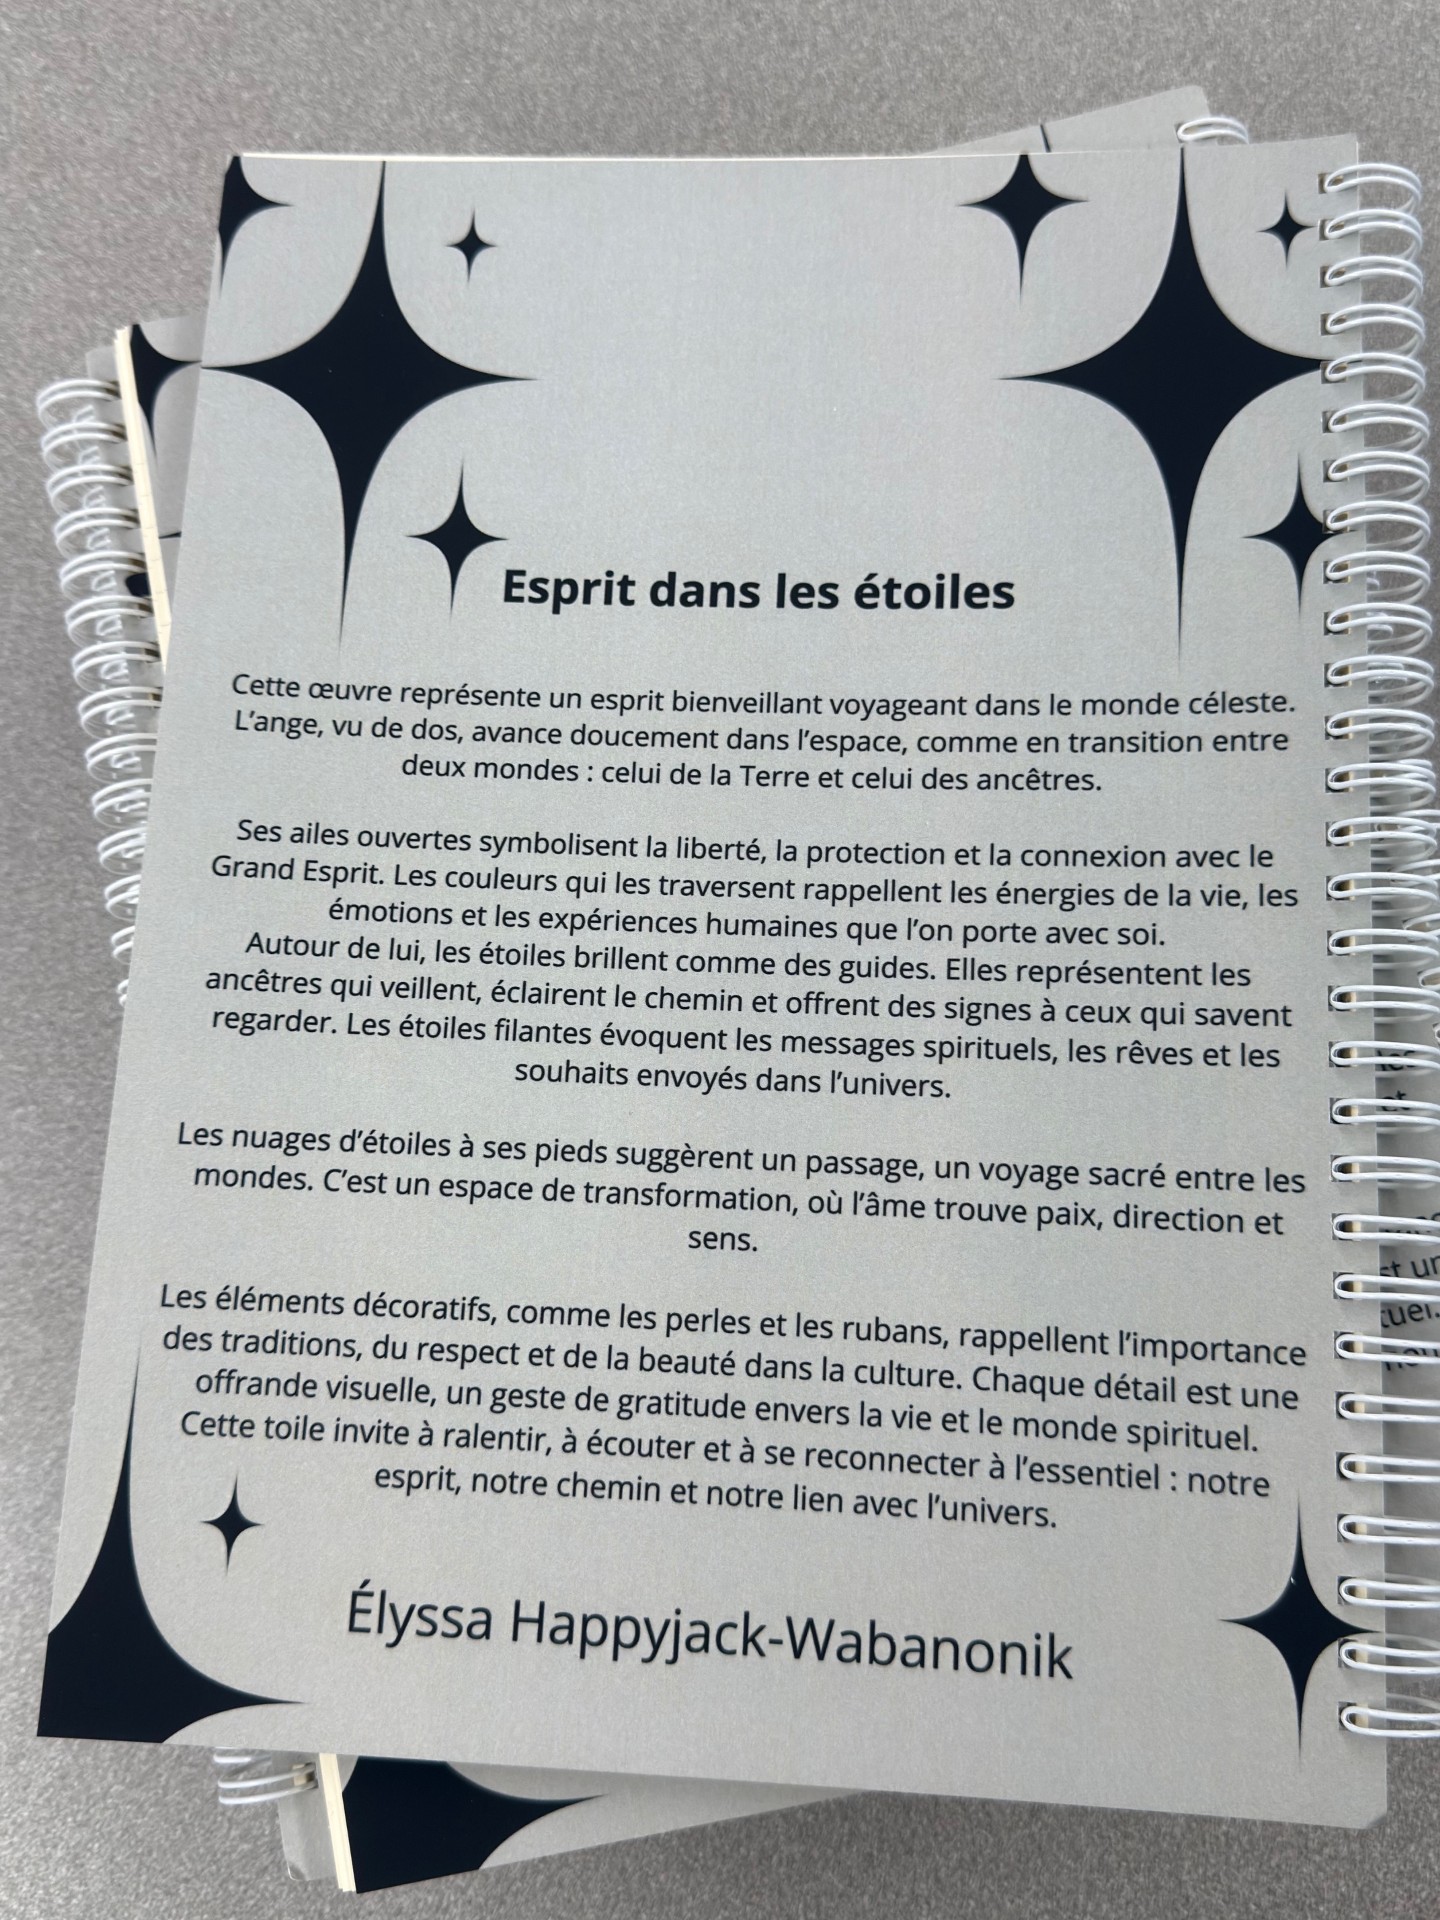 Esprit dans les étoiles
Cette œuvre représente un esprit bienveillant voyageant dans le monde céleste.
L'ange, vu de dos, avance doucement dans l'espace, comme en transition entre
deux mondes : celui de la Terre et celui des ancêtres.
Ses ailes ouvertes symbolisent la liberté, la protection et la connexion avec le
Grand Esprit. Les couleurs qui les traversent rappellent les énergies de la vie, les
émotions et les expériences humaines que l'on porte avec soi.
Autour de lui, les étoiles brillent comme des guides. Elles représentent les
ancêtres qui veillent, éclairent le chemin et offrent des signes à ceux qui savent
regarder. Les étoiles filantes évoquent les messages spirituels, les rêves et les
souhaits envoyés dans l'univers.
Les nuages d'étoiles à ses pieds suggèrent un passage, un voyage sacré entre les
mondes. C'est un espace de transformation, où l'âme trouve paix, direction et
sens.
Les éléments décoratifs, comme les perles et les rubans, rappellent l'importance
des traditions, du respect et de la beauté dans la culture. Chaque détail est une
offrande visuelle, un geste de gratitude envers la vie et le monde spirituel.
Cette toile invite à ralentir, à écouter et à se reconnecter à l'essentiel : notre
esprit, notre chemin et notre lien avec l'univers.
Élyssa Happyjack-Wabanonik